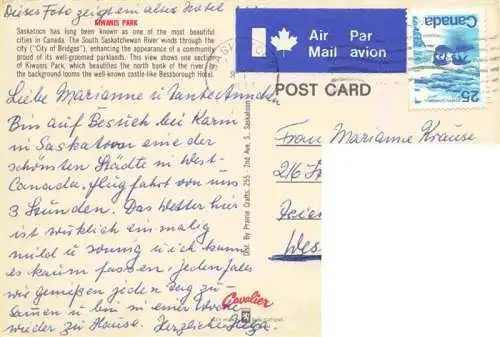 Dieses Foto zeigt ein altes Hotel
KIWANIS PARK
Saskatoon has long been known as one of the most beautiful
cities in Canada. The South Saskatchewan River winds through the
city ("City of Bridges"), enhancing the appearance of a community
proud of its well-groomed parklands. This view shows one section
of Kiwanis Park, which beautifies the north bank of the river. On
the background looms the well-known castle-like Bessborough Hotel.
Liebe Marianne u Tante Ännchen
Bin auf Besuch bei Karin
in Saskatoon eine der
schönsten Städte in West-
Canada, Flugfahrt von uns
3 Stunden. Das Wetter hier
ist wirklich einmalig
mild u sonnig u ich kann
es kaum fassen. Jedenfalls
wir genießen jeden Tag zu-
sammen u bin in einer Woche
wieder zu Hause. Herzliche Helga
Dist. By Prairie Crafts, 255 - 2nd Ave. S., Saskatoon
Cavalier
Air Par
Mail avion
Canada
25
POST CARD
Frau Marianne Krause
216
Wes